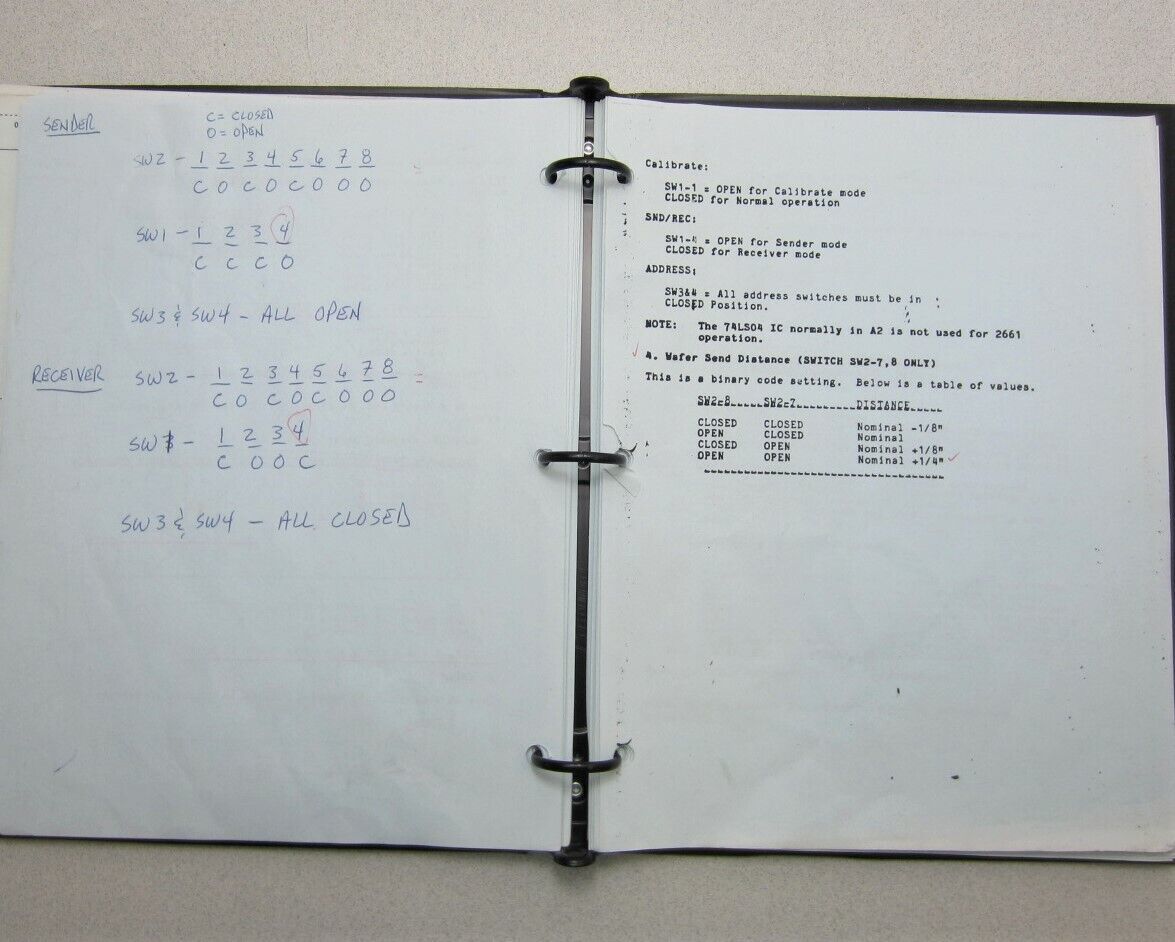 SENDER
C = CLOSED
O = OPEN
SW2 - 1 2 3 4 5 6 7 8
C O C O C O O O
SW1 - 1 2 3 4
C C C O
SW3 & SW4 - ALL OPEN
RECEIVER
SW2 - 1 2 3 4 5 6 7 8
C O C O C O O O
SW1 - 1 2 3 4
C O O C
SW3 & SW4 - ALL CLOSED
Calibrate:
SW1-1 = OPEN for Calibrate mode
CLOSED for Normal operation
SND/REC:
SW1-4 = OPEN for Sender mode
CLOSED for Receiver mode
ADDRESS:
SW3&4 = All address switches must be in
CLOSED Position.
NOTE: The 74LS04 IC normally in A2 is not used for 2661
operation.
4. Wafer Send Distance (SWITCH SW2-7,8 ONLY)
This is a binary code setting. Below is a table of values.
SW2-8 SW2-7 DISTANCE
CLOSED CLOSED Nominal -1/8"
OPEN CLOSED Nominal
CLOSED OPEN Nominal +1/8"
OPEN OPEN Nominal +1/4"